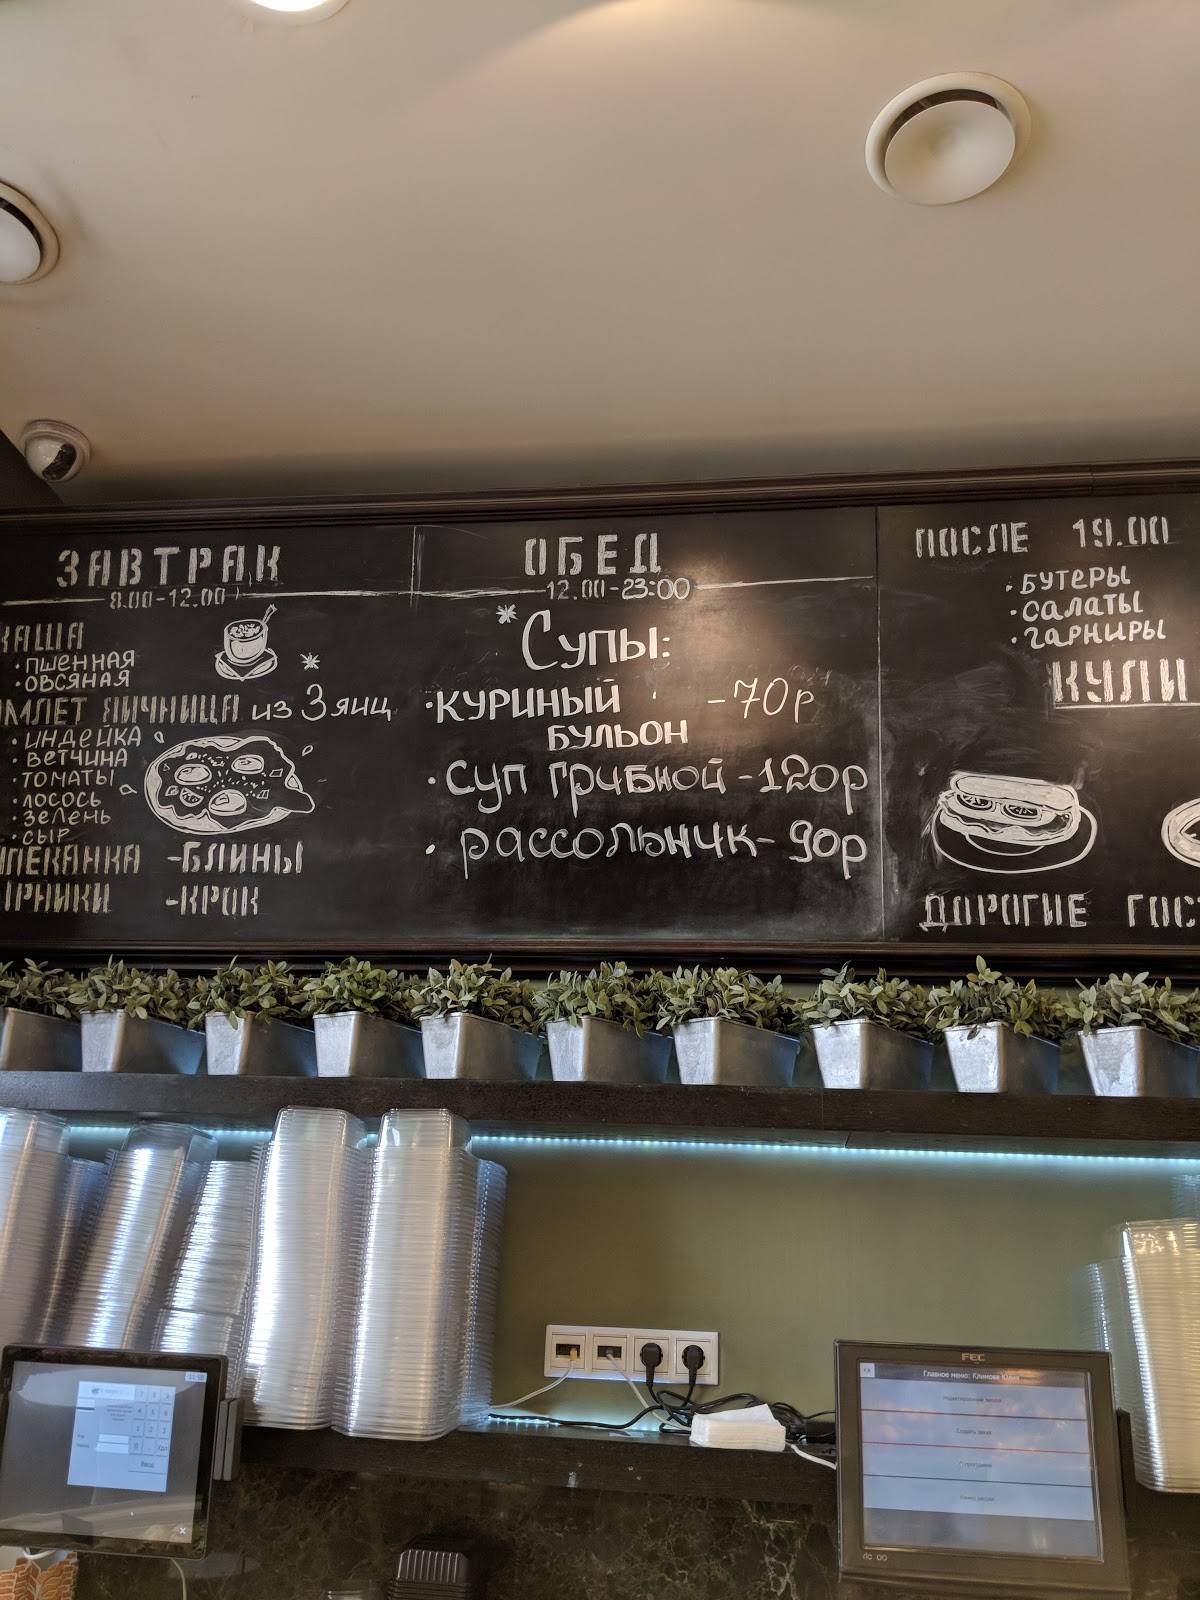 ЗАВТРАК
8.00-12.00
КАША
·ПШЕННАЯ
·ОВСЯНАЯ
ОМЛЕТ ЯИЧНИЦА ИЗ 3 ЯИЦ
·ИНДЕЙКА
·ВЕТЧИНА
·ТОМАТЫ
·ЛОСОСЬ
·ЗЕЛЕНЬ
·СЫР
-БЛИНЫ
-КРОК
ОБЕД
12.00-23:00
*СУПЫ:
·КУРИНЫЙ -70р
БУЛЬОН
·СУП ГРИБНОЙ -120р
·РАССОЛЬНИК- 90р
ПОСЛЕ 19.00
·БУТЕРЫ
·САЛАТЫ
·ГАРНИРЫ
КУЛИ
ДОРОГИЕ ГОС
FEC
Главное меню: Климова Юлия
Создать заказ
11:58